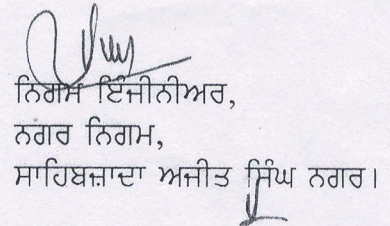 ਨਿਗਮ ਇੰਜੀਨੀਅਰ,
ਨਗਰ ਨਿਗਮ,
ਸਾਹਿਬਜ਼ਾਦਾ ਅਜੀਤ ਸਿੰਘ ਨਗਰ।